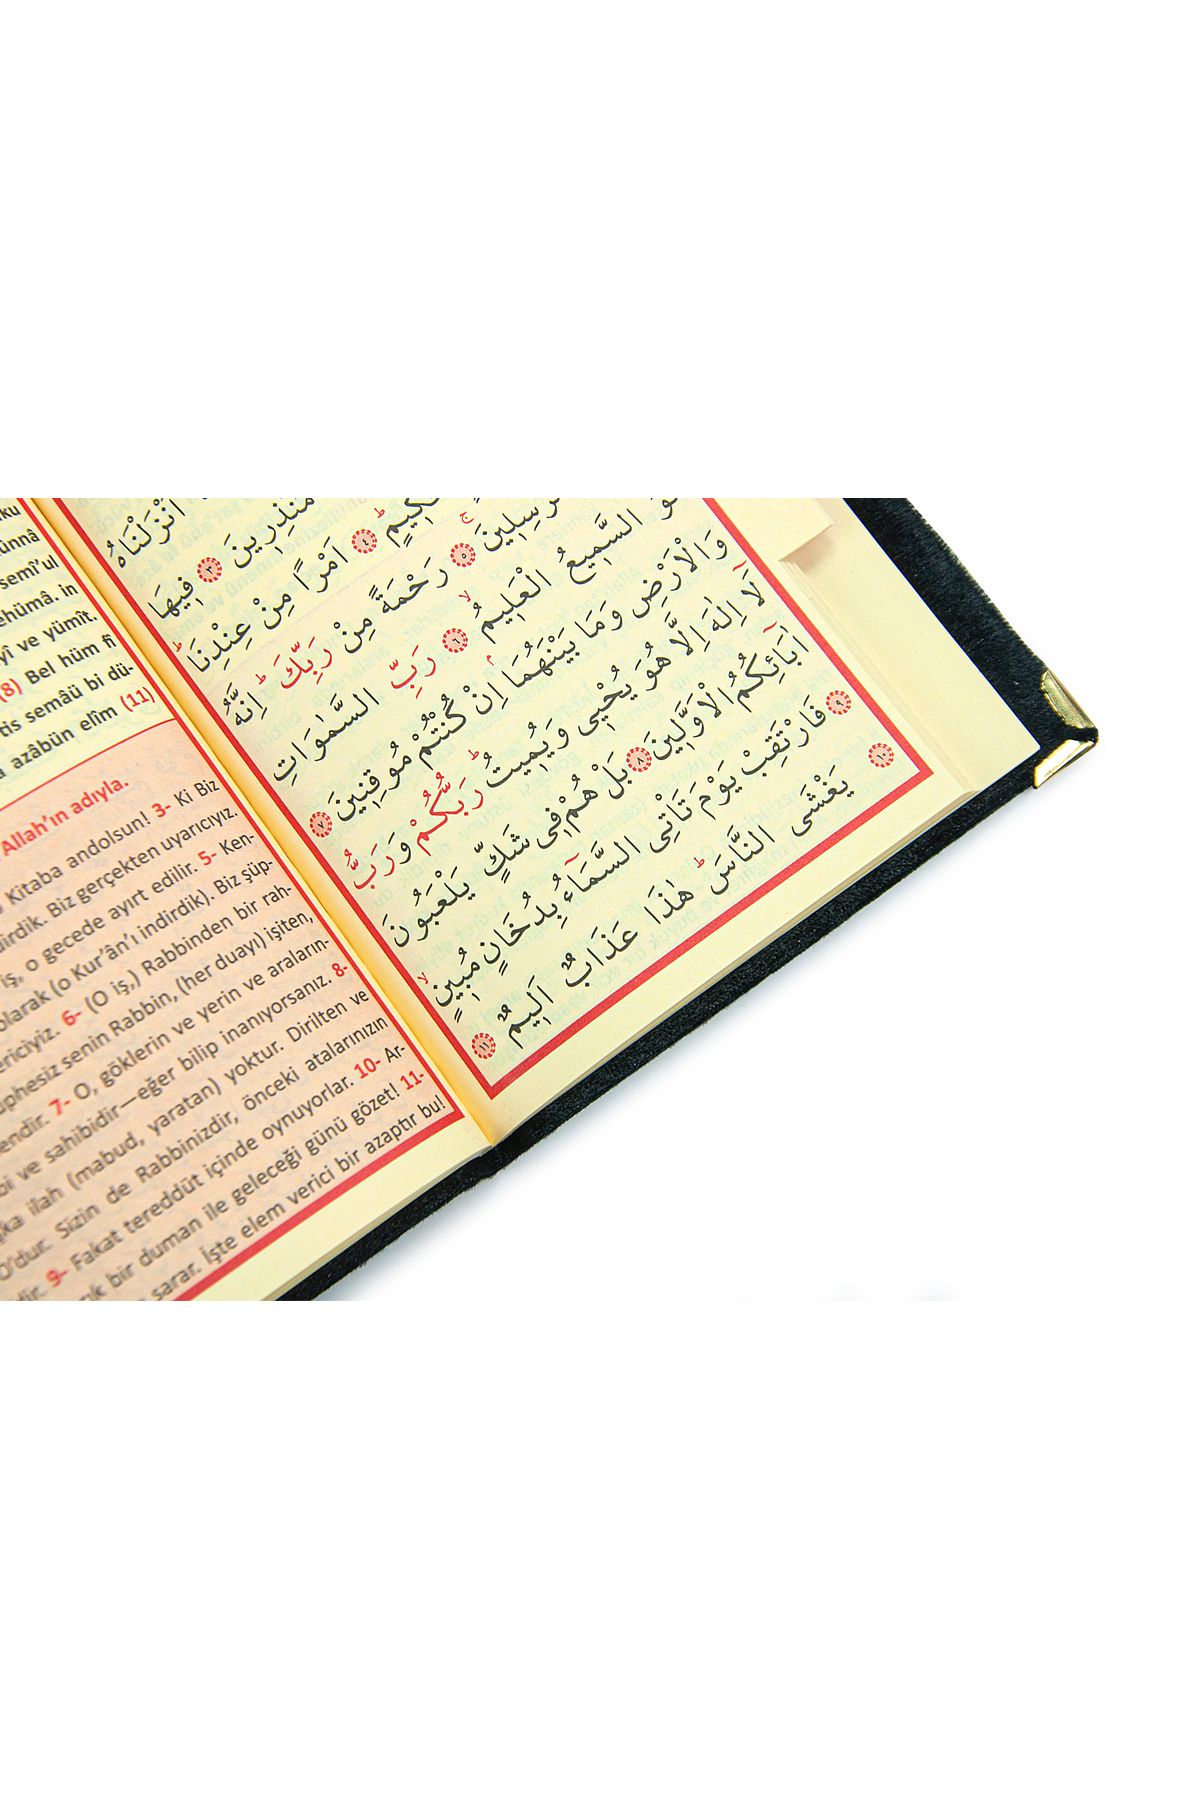 ünnâ
semî'ul
ehümâ. in
yî ve yümît.
(8) Bel hüm fî
tis semâü bi dü-
a azâbün elîm (11)
Allah'ın adıyla.
Kitaba andolsun! 3- Ki Biz
dirdik. Biz gerçekten uyarıcıyız.
iş, o gecede ayırt edilir. 5- Ken-
olarak (o Kur'ân'ı indirdik). Biz şüp-
ericiyiz. 6- (O iş,) Rabbinden bir rah-
uphesiz senin Rabbin, (her duayı) işiten,
endir. 7- O, göklerin ve yerin ve araların-
bi ve sahibidir—eğer bilip inanıyorsanız. 8-
şka ilah (mabud, yaratan) yoktur. Dirilten ve
O'dur. Sizin de Rabbinizdir, önceki atalarınızın
dir. 9- Fakat tereddüt içinde oynuyorlar. 10- Ar-
ık bir duman ile geleceği günü gözet! 11-
sarar. İşte elem verici bir azaptır bu!
اَنْزَلْنَاهُ
مُنْذِرٖينَ ﴿٣﴾ فٖيهَا
حَكٖيمٍ ﴿٤﴾ اَمْرًا مِنْ عِنْدِنَا
مُرْسِلٖينَ ﴿٥﴾ رَحْمَةً مِنْ رَبِّكَ اِنَّهُ
هُوَ السَّمٖيعُ الْعَلٖيمُ ﴿٦﴾ رَبِّ السَّمٰوَاتِ
وَالْاَرْضِ وَمَا بَيْنَهُمَا اِنْ كُنْتُمْ مُوقِنٖينَ ﴿٧﴾
لَٓا اِلٰهَ اِلَّا هُوَ يُحْيٖى وَيُمٖيتُ رَبُّكُمْ وَرَبُّ
اٰبَٓائِكُمُ الْاَوَّلٖينَ ﴿٨﴾ بَلْ هُمْ فٖى شَكٍّ يَلْعَبُونَ
﴿٩﴾ فَارْتَقِبْ يَوْمَ تَاْتِى السَّمَٓاءُ بِدُخَانٍ مُبٖينٍ
﴿١٠﴾ يَغْشَى النَّاسَ هٰذَا عَذَابٌ اَلٖيمٌ ﴿١١﴾